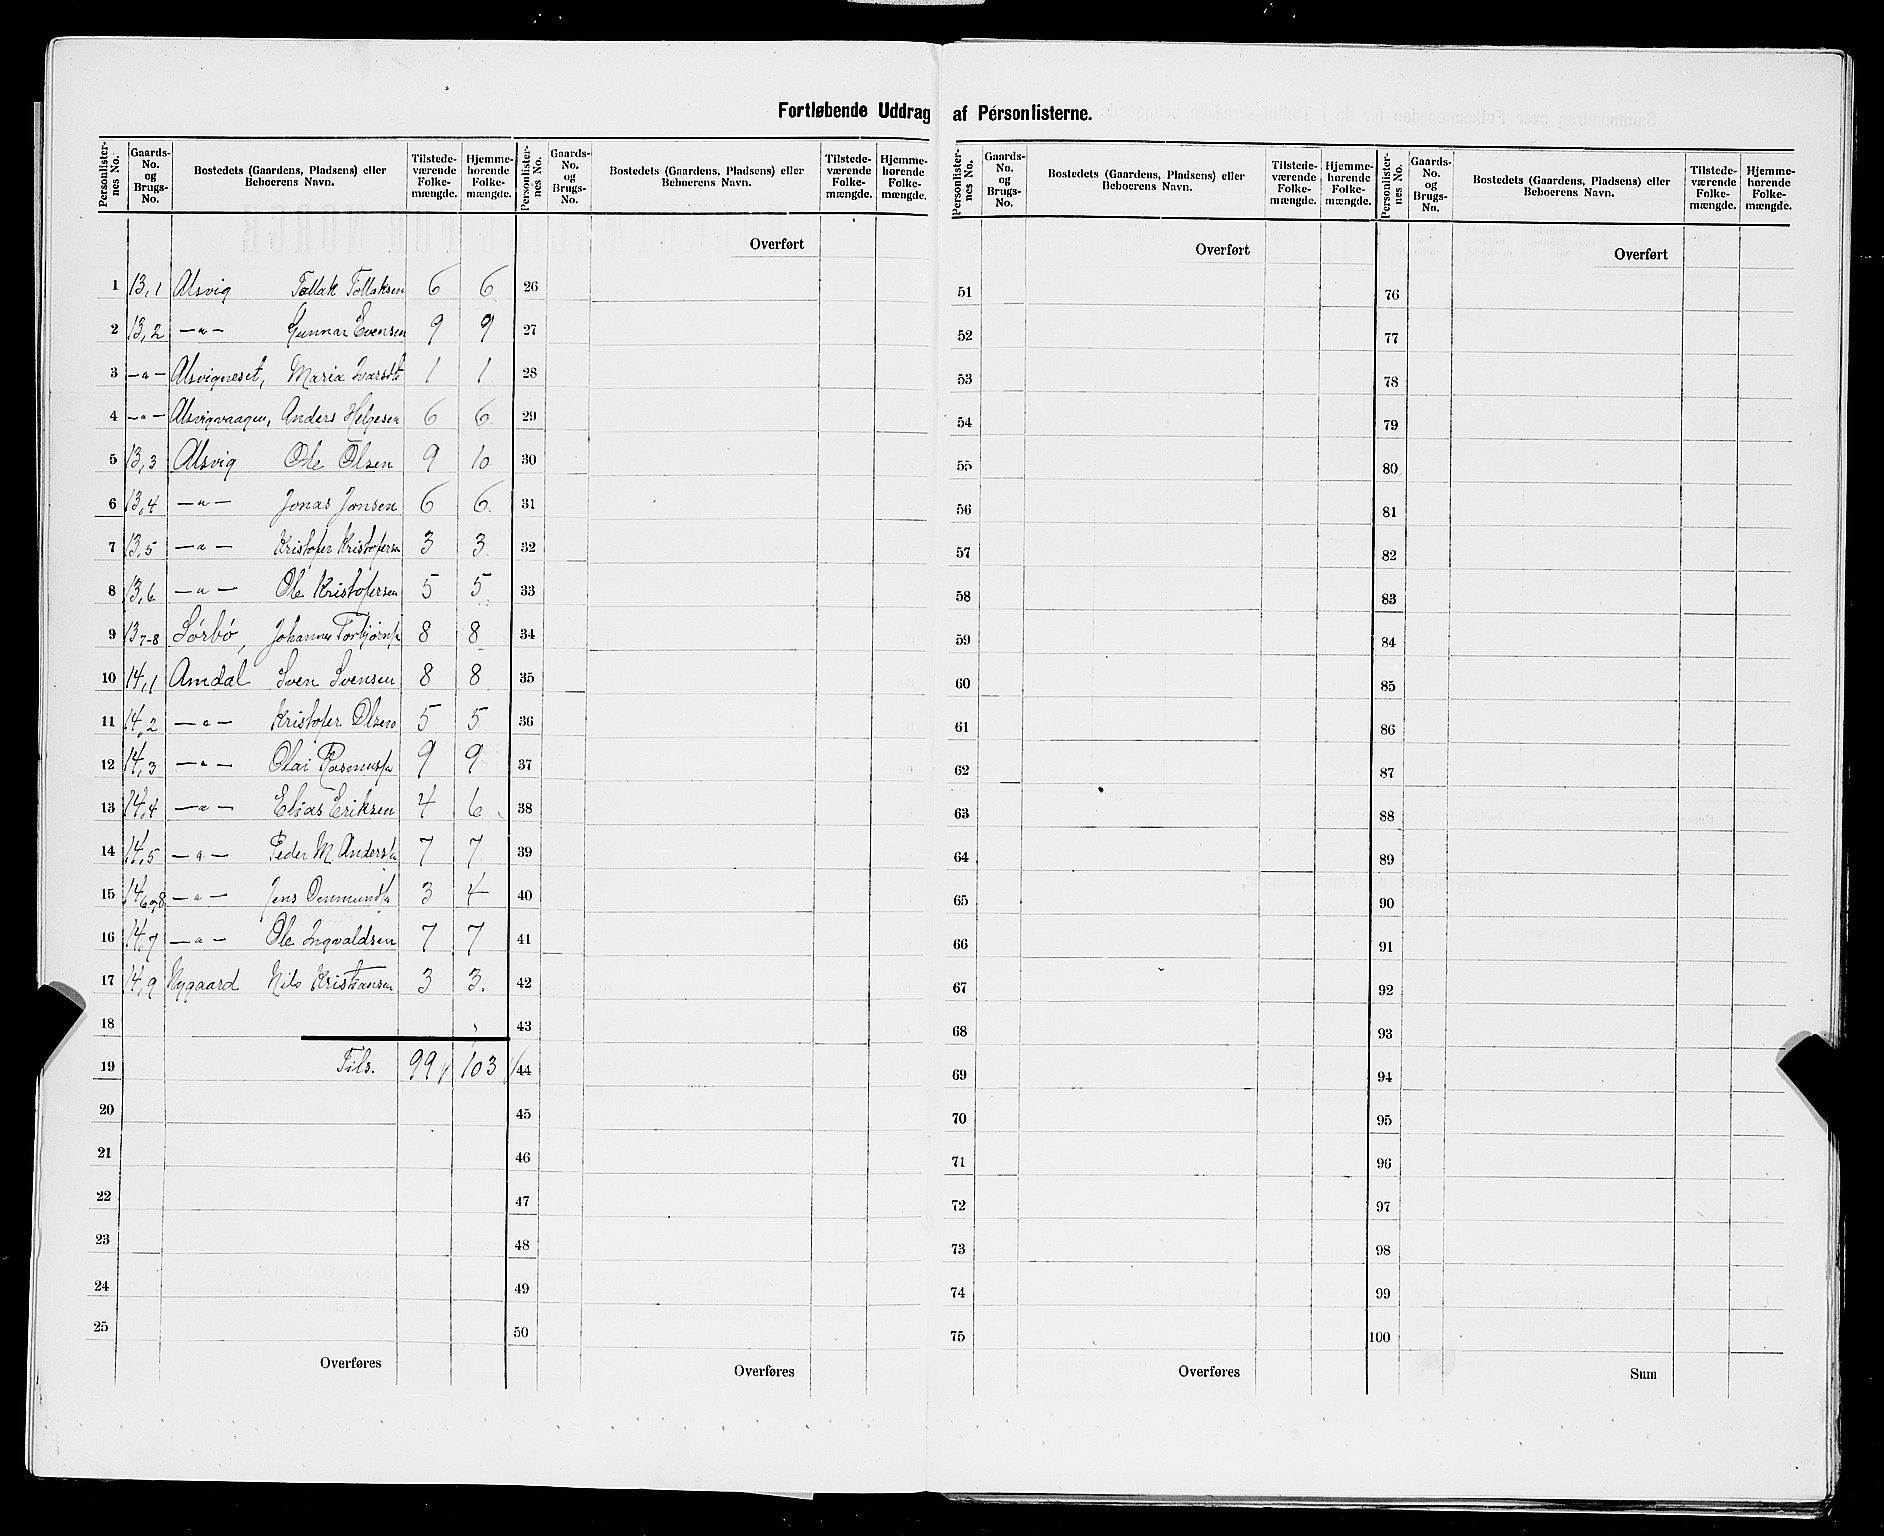 Fortløbende Uddrag af Pérsonlisterne.
Personlister-nes No. | Gaards-No. og Brugs-No. | Bostedets (Gaardens, Pladsens) eller Beboerens Navn. | Tilstede-værende Folke-mængde. | Hjemme-hørende Folke-mængde.
Personlister-nes No. | Gaards-No. og Brugs-No. | Bostedets (Gaardens, Pladsens) eller Beboerens Navn. | Tilstede-værende Folke-mængde. | Hjemme-hørende Folke-mængde.
Personlister-nes No. | Gaards-No. og Brugs-No. | Bostedets (Gaardens, Pladsens) eller Beboerens Navn. | Tilstede-værende Folke-mængde. | Hjemme-hørende Folke-mængde.
Personlister-nes No. | Gaards-No. og Brugs-Nn. | Bostedets (Gaardens, Pladsens) eller Beboerens Navn. | Tilstede-værende Folke-mængde. | Hjemme-hørende Folke-mængde.
1 13,1 Alsvig Tollak Tollaksen 6 6
2 13,2 —"— Gunnar Evensen 9 9
3 —"— Alsvigneset, Maria Ivarsdt 1 1
4 —"— Alsvigvaagen, Anders Helgesen 6 6
5 13,3 Alsvig Ole Olsen 9 10
6 13,4 —"— Jonas Jonsen 6 6
7 13,5 —"— Kristofer Kristofersen 3 3
8 13,6 —"— Ole Kristofersen 5 5
9 13 7-8 Sørbø, Johannes Torbjørns 8 8
10 14,1 Amdal Sven Svensen 8 8
11 14,2 —"— Kristofer Olsen 5 5
12 14,3 —"— Olai Rasmuss 9 9
13 14,4 —"— Elias Eriksen 4 6
14 14,5 —"— Peder M. Anderss 7 7
15 14 6 og 8 —"— Jens 3 4
16 14,7 —"— Ole Ingvaldsen 7 7
17 14,9 Nygaard Nils Kristiansen 3 3.
18
19 Tils. 99 103
20
21
22
23
24
25
Overføres
Overført
26
27
28
29
30
31
32
33
34
35
36
37
38
39
40
41
42
43
44
45
46
47
48
49
50
Overføres
Overført
51
52
53
54
55
56
57
58
59
60
61
62
63
64
65
66
67
68
69
70
71
72
73
74
75
Overføres
Overført
76
77
78
79
80
81
82
83
84
85
86
87
88
89
90
91
92
93
94
95
96
97
98
99
100
Sum